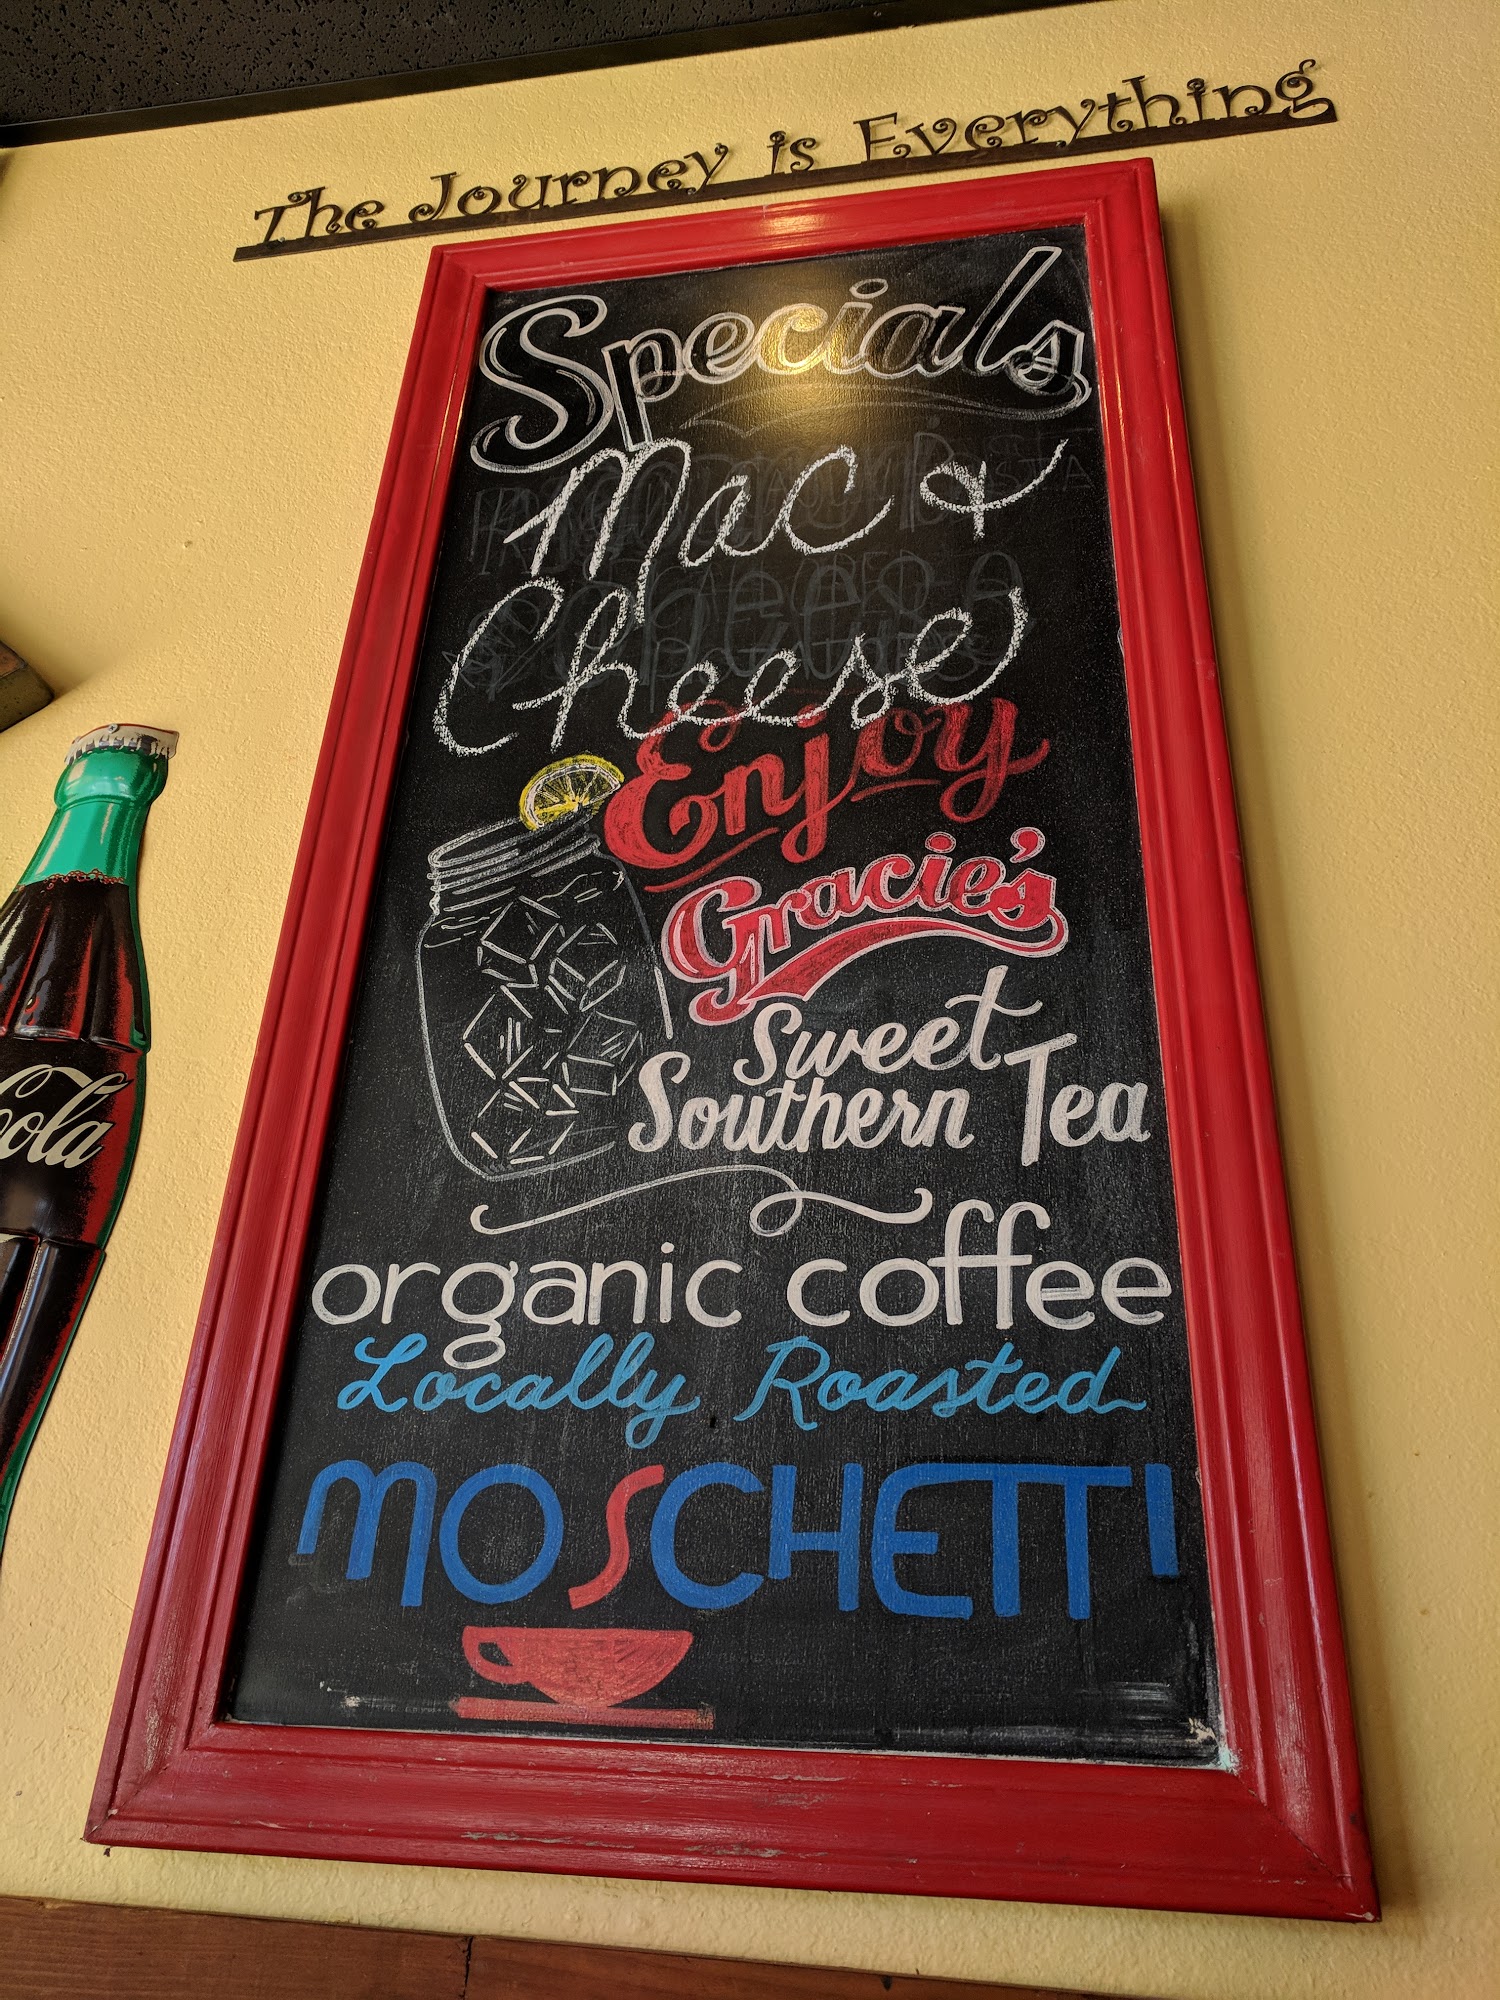 The Journey is Everything
Specials
Mac &
Cheese
Enjoy
Gracie's
Sweet
Southern Tea
organic coffee
Locally Roasted
MOSCHETTI
Cola